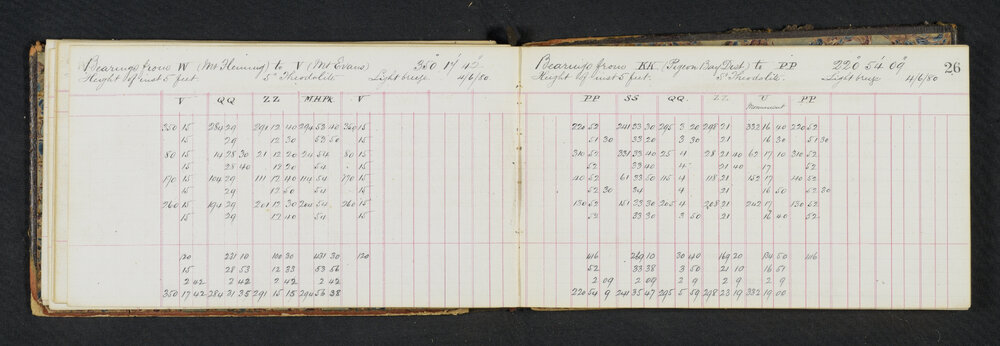 Bearings from W (Mt Fleming) to V (Mt Evans) 350° 17 42
Height of inst 5 feet. 5" Theodolite. Light breeze 4/6/80
V QQ ZZ M.H.Pk V
350 15 284 29 291 12 40 294 53 40 350 15
15 29 12 30 53 50 15
80 15 14 28 30 21 12 20 24 54 80 15
15 28 40 12 20 54 15
170 15 104 29 111 12 40 114 54 170 15
15 29 12 50 54 15
260 15 194 29 201 12 30 204 54 260 15
15 29 12 40 54 15
120 231 10 100 30 431 30 120
15 28 53 12 33 53 56
2 42 2 42 2 42 2 42
350 17 42 284 31 35 291 15 15 294 56 38
Bearings from KK (Pigeon Bay Dist) to PP 220° 54 09 26
Height of inst 5 feet. 5" Theodolite. Light breeze 4/6/80
PP SS QQ ZZ U PP
Monument
220 52 241 33 30 295 3 20 298 21 332 16 40 220 52
51 30 33 20 3 30 21 16 30 51 30
310 52 331 33 40 25 4 28 21 40 62 17 10 310 52
52 33 40 4 21 40 17 52
40 52 61 33 50 115 4 118 21 152 17 40 52
52 30 34 4 21 16 50 52 30
130 52 151 33 30 205 4 208 21 242 17 130 52
52 33 30 3 50 21 16 40 52
416 269 10 30 40 169 20 134 50 416
52 33 38 3 50 21 10 16 51
2 09 2 09 2 9 2 9 2 9
220 54 9 241 35 47 295 5 59 298 23 19 332 19 00